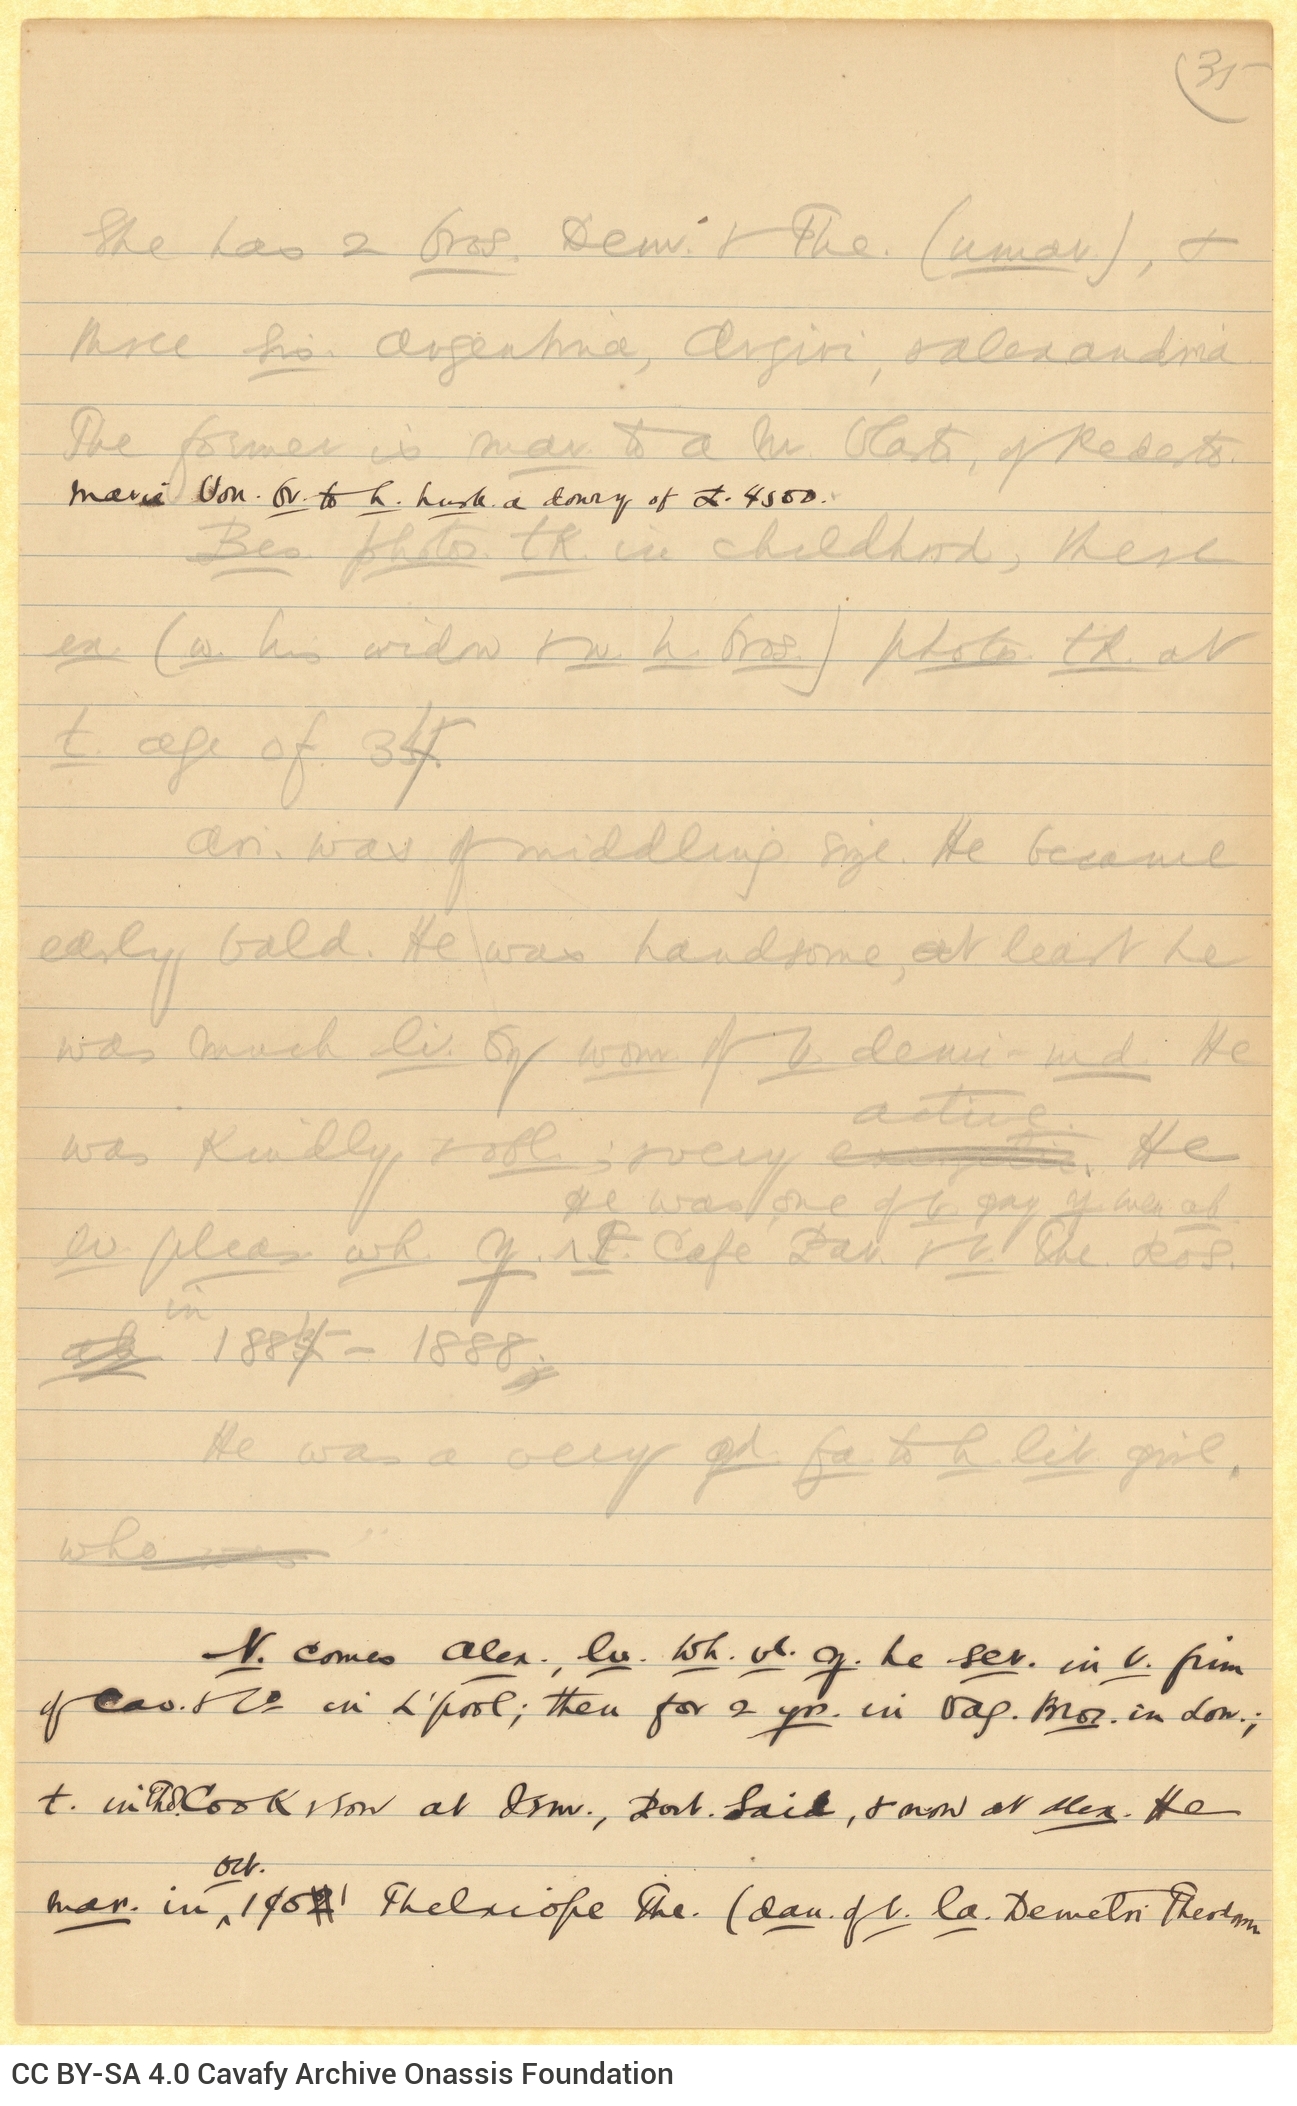 (35
She has 2 bros. Dem. & The. (unmar.), &
three sis. Argentina, Argini, & Alexandria
The former is mar. to a Mr. Vlasto, of Rodosto.
Marie Von. br. to h. husb. a dowry of £. 4500.
Bes. photos. tk. in childhood, there
ex. (w. his widow & w. h. bros.) photos. tk. at
t. age of 35
Ari. was of middling size. He became
early bald. He was handsome, at least he
was much li. by wom. of t. demi-md. He
active
was kindly & obl.; & very energetic. He
He was one of t. gay y. men at
lv. pleas. wh. y. t. Cafe Par. & t. The. Ros.
in
at 1885 - 1888;
He was a very gd. fa. to h. lit. girl,
who was
N. comes Alex., liv. Wh. vl. y. he ser. in t. firm
of Cav. & Co in L'pool; then for 2 yrs. in Vag. Bros. in Lon.;
t. in Thos. Cook & Son at Ism., Port. Said, & now at Alex. He
Oct.
mar. in 1901 Thelxiope The. (dau. of t. la. Demetri Theodorou
CC BY-SA 4.0 Cavafy Archive Onassis Foundation